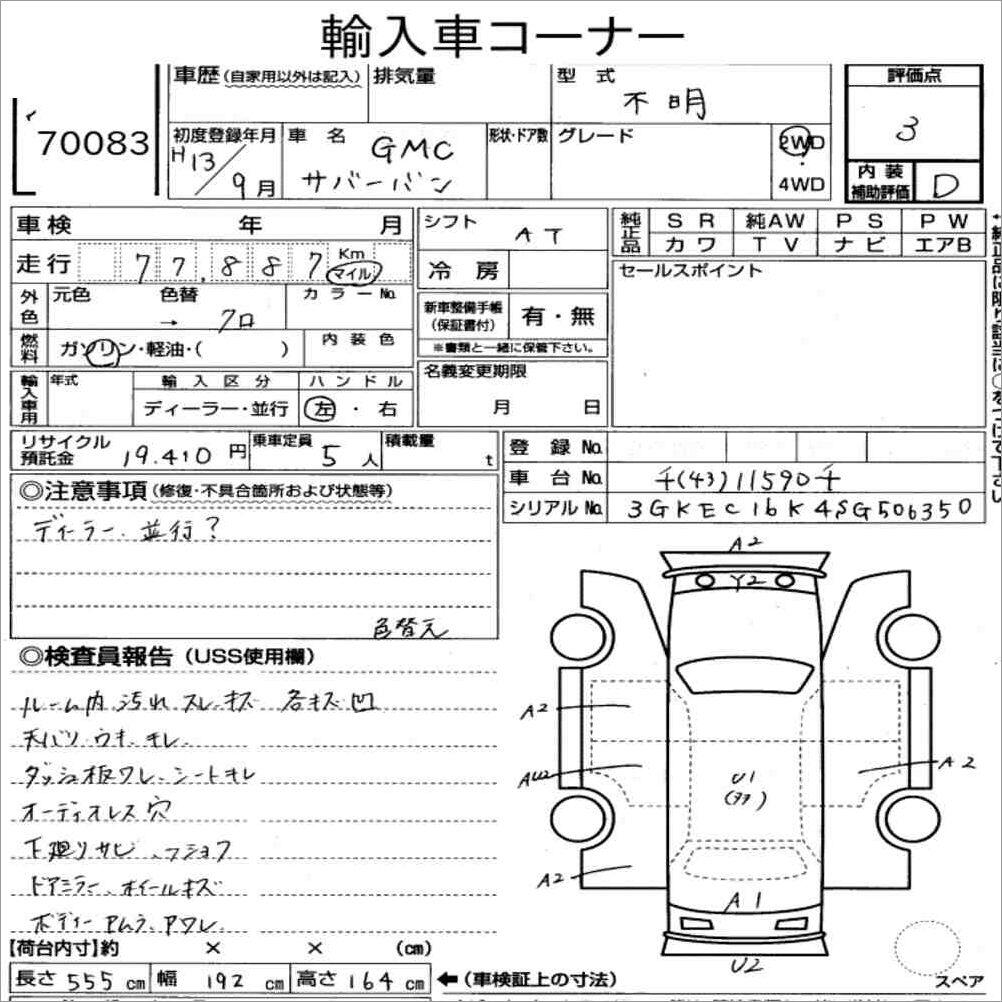 輸入車コーナー
70083
車歴 (自家用以外は記入)
排気量
型式
不明
評価点
3
初度登録年月
H13/9月
車名
GMC
サバーバン
形状・ドア数
グレード
2WD
・
4WD
内装
補助評価
D
車検 年 月
シフト
AT
純正品
SR 純AW PS PW
カワ TV ナビ エアB
走行 77,887 Km
マイル
冷房
セールスポイント
外色
元色 色替 カラーNo.
→ クロ
新車整備手帳
(保証書付)
有・無
※書類と一緒に保管下さい。
燃料
ガソリン・軽油・( )
内装色
輸入車用
年式
輸入区分
ハンドル
ディーラー・並行
左・右
名義変更期限
月 日
リサイクル
預託金
19.410円
乗車定員
5人
積載量
t
登録No.
車台No.
千(43)11590千
シリアルNo.
3GKEC16K4SG506350
◎注意事項(修復・不具合箇所および状態等)
ディーラー、並行?
色替元
◎検査員報告(USS使用欄)
ルーム内 汚れ スレ・キズ 各キズ凹
天バリ・ウキ・キレ
ダッシュ板ワレ、シートキレ
オーディオレス穴
下廻りサビ、マショク
ドアミラー、ホイールキズ
ボディー アムラ、アワレ
A2
Y2
A2
AU2
A2
U1
A2
A1
U2
スペア
【荷台内寸】約 × × (cm)
長さ 555 cm 幅 192 cm 高さ 164 cm
←(車検証上の寸法)